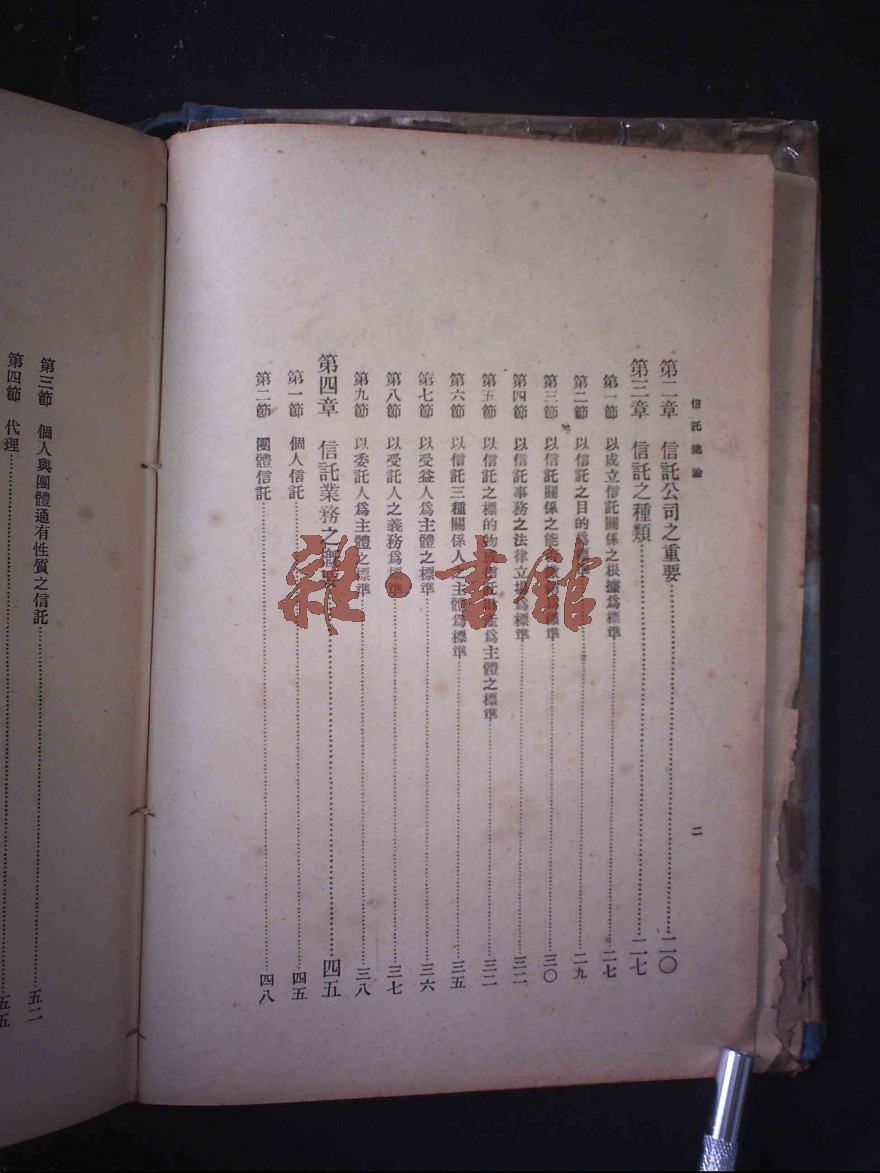 信託總論
二
第二章 信託公司之重要……二〇
第三章 信託之種類……二七
第一節 以成立信託關係之根據爲標準……二七
第二節 以信託之目的爲……二九
第三節 以信託關係之能……爲標準……三〇
第四節 以信託事務之法律立場爲標準……三二
第五節 以信託之標的物……信託……爲主體之標準……三二
第六節 以信託三種關係人之主體爲標準……三五
第七節 以受益人爲主體之標準……三六
第八節 以受託人之義務爲標準……三七
第九節 以委託人爲主體之標準……三八
第四章 信託業務之概要……四五
第一節 個人信託……四五
第二節 團體信託……四八
第三節 個人與團體通有性質之信託……五二
第四節 代理……五五
雜·書館